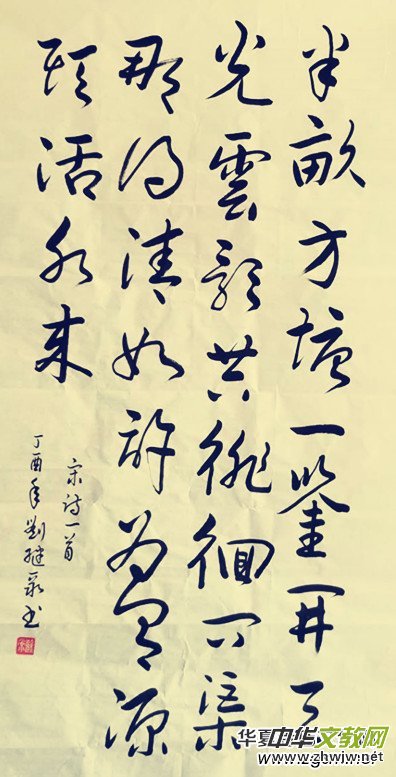 半畝方塘一鑒開天
光雲影共徘徊問渠
那得清如許為有源
頭活水來
宋詩一首
丁酉年劉書
华夏
中华文教网
www.zhwjw.net